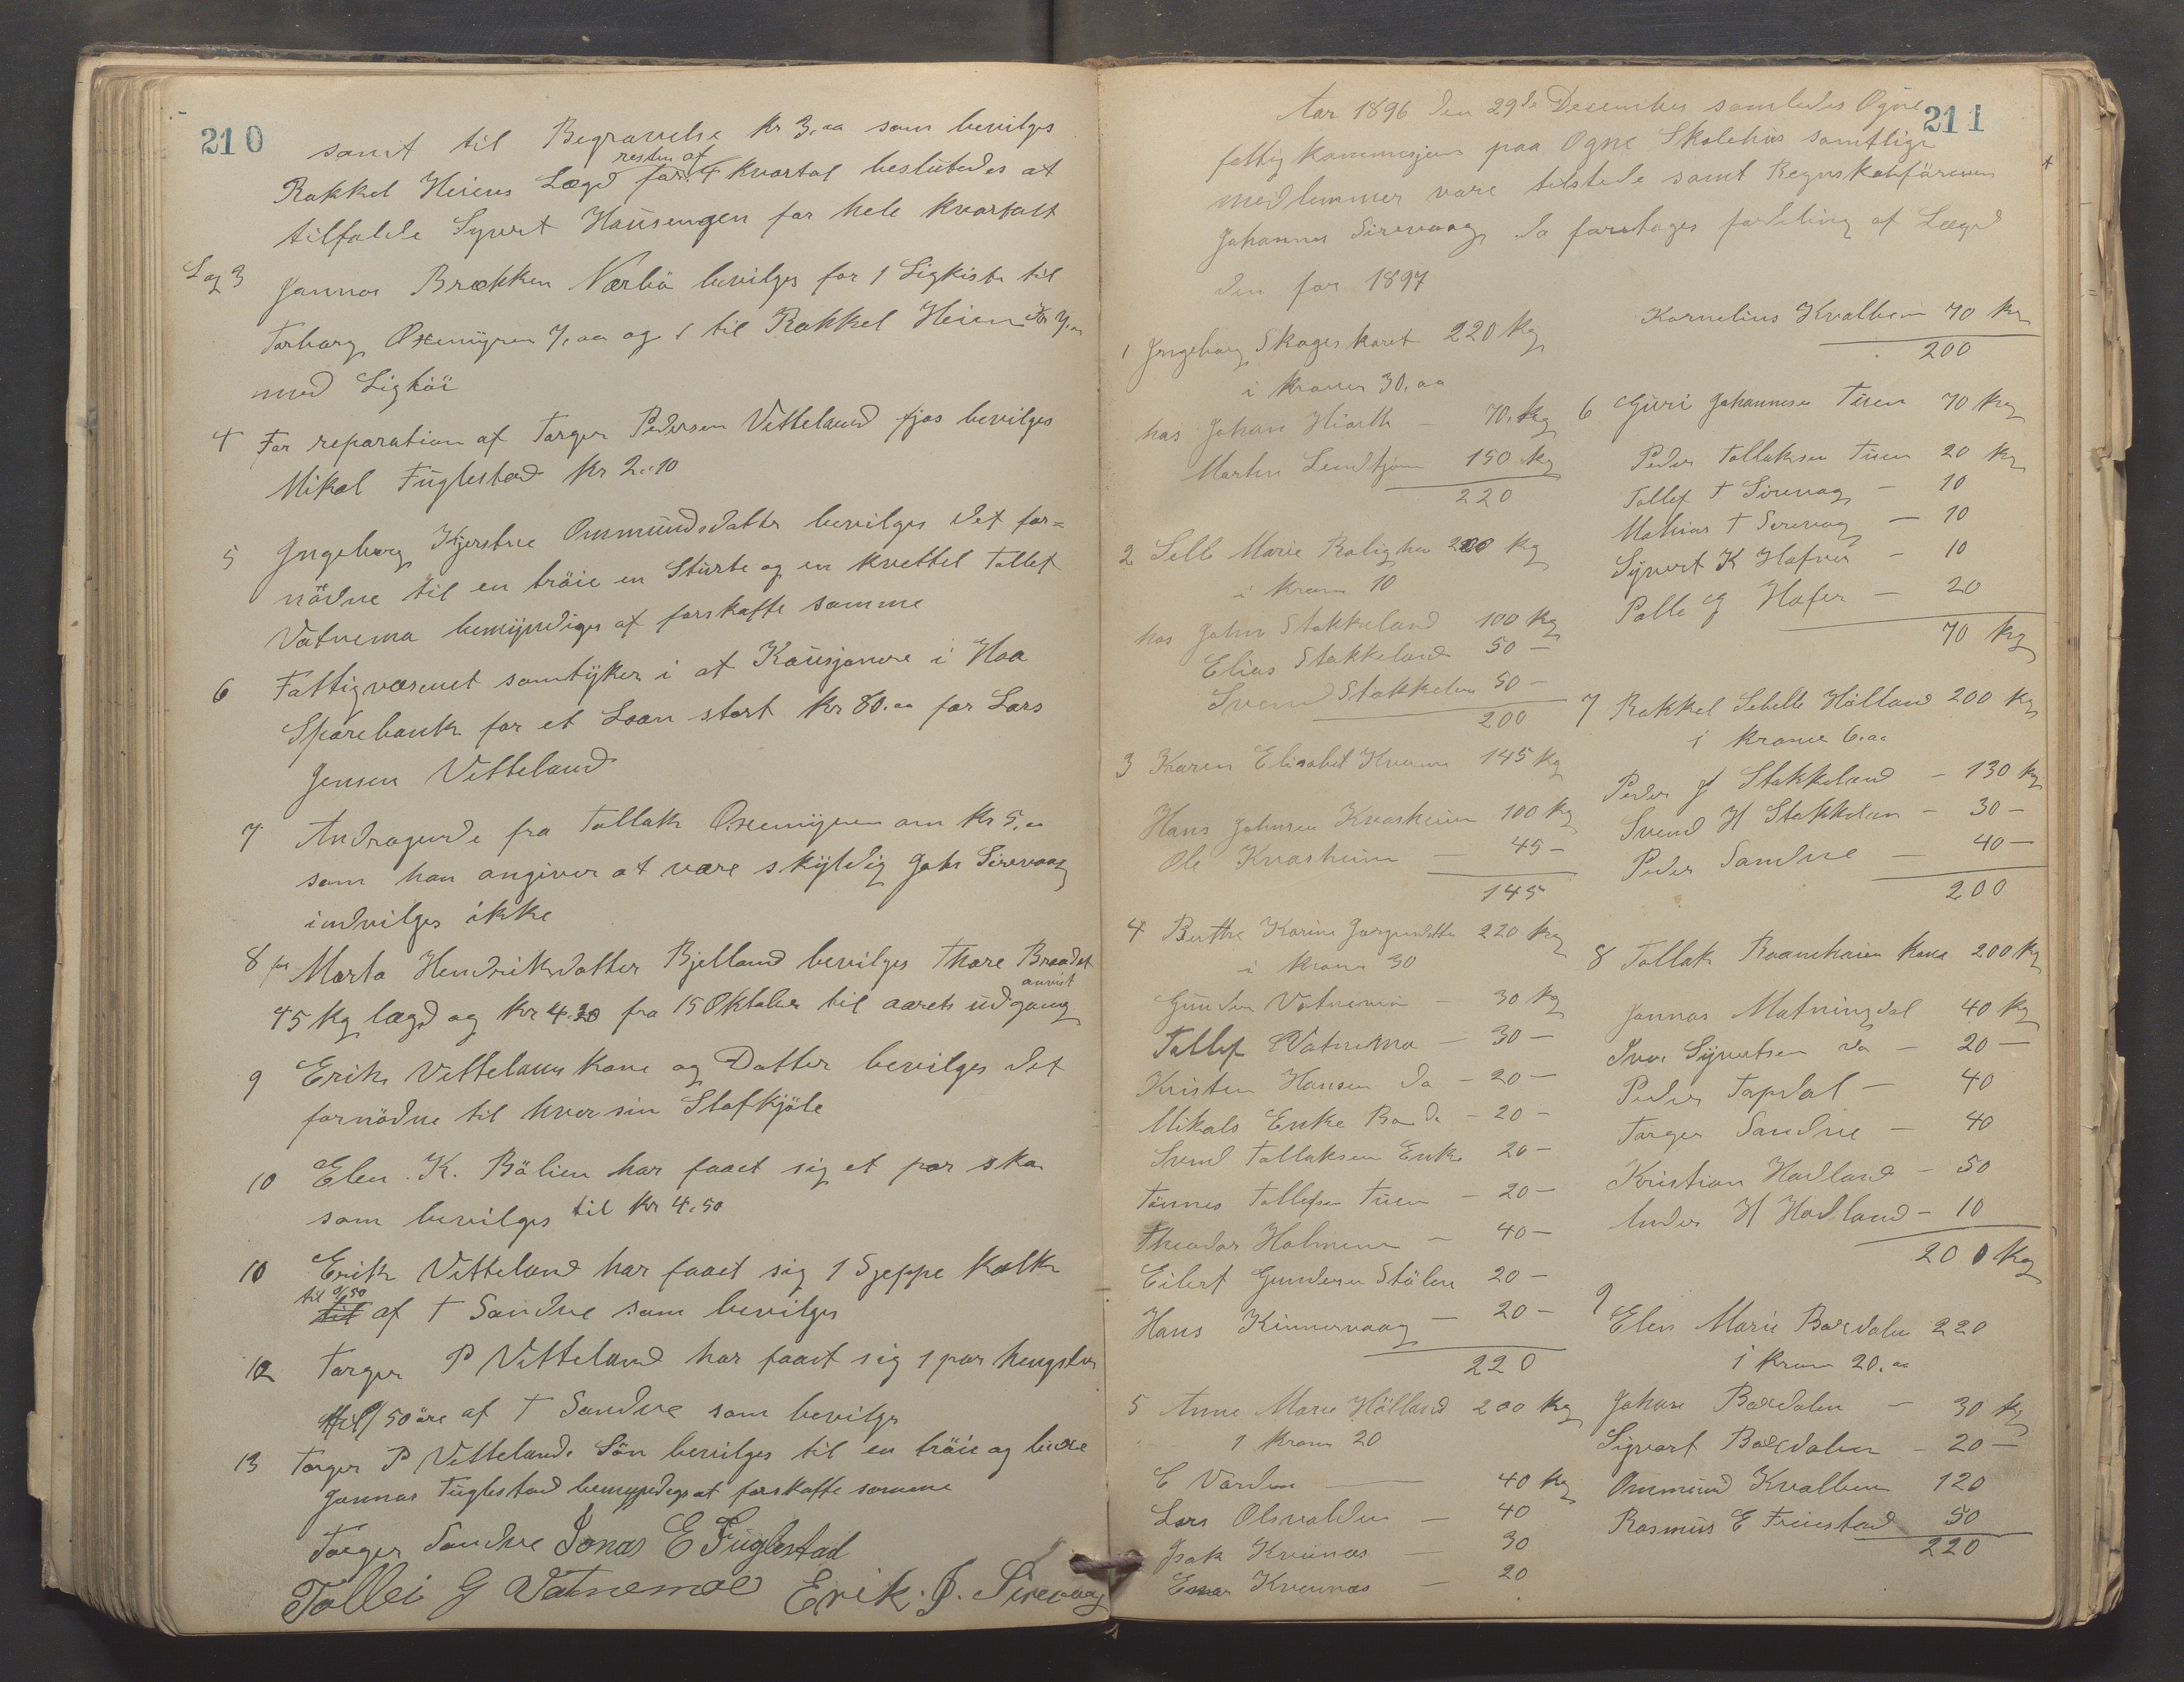 210
samt til Begravelse Kr 3,00 som bevilges
Rakkel Heiens Lægd for resten af 4 kvartal beslutedes at
tilfalde Syvert Hausengen for hele kvartalt
2 og 3 Jannas Brekken Nærbö bevilges for 1 Ligkiste til
Torborg Oxemyren 7,00 og 1 til Rakkel Heien Kr 7,00
med Ligtöi
4 For reparation af Torger Pedersen Vetteland fjøs bevilges
Mikal Fuglestad Kr 2.10
5 Ingeborg Kjerstine Ommundsdatter bevilges det for=
nödne til en tröie en Stürte og en kvettel Tollef
Vatnema bemyndiges at forskaffe samme
6 Fattigvæsenet samtyker i at Kausjonere i Haa
Sparebank for et Laan stort Kr 80.00 for Lars
Jensen Vetteland
7 Andragende fra Tollak Oxemyren om Kr 5,00
som han angiver at være skyldig Johs Sirevaag
indvilges ikke
8 for Marta Hendriksdatter Bjelland bevilges Thore Braadet
anvist
45 Kg lægd og Kr 4.20 fra 15 Oktober til aarets udgang
9 Erik Vettelands Kone og Datter bevilges det
fornödne til hver sin Stofkjöle
10 Elen K. Bälien har faaet sig et par sko
som bevilges til Kr 4.50
10 Erik Vetteland har faaet sig 1 Sjeppe Kalk
til 0/50
til af T Sandve som bevilges
12 Torger P Vetteland har faaet sig 1 par hengsler
til 50 öre af T Sandve som bevilges
13 Torger P Vettelands Sön bevilges til en tröie og buxe
Jonnas Fuglestad bemyndiges at forskaffe samme
Torger Sandve Jonas E Fuglestad
Tollei G Vatnemoe Erik. J. Sirevaag
211
Aar 1896 den 29de December samledes Ogne
fattigkommisjon paa Ogne Skolehus samtlige
medlemmer vare tilstede samt Regnskabföreren
Johannes Sirevaag da foretages fordeling af Lægd
den for 1897
1 Ingeborg Skogeskaret 220 Kg
i kroner 30.00
hos Johan Hiorth – 70. Kg
Marten Lendtjøn 150 Kg
220
2 Selle Marie Boligher 200 Kg
i krone 10
hos John Stokkeland 100 Kg
Elias Stokkeland 50 –
Svend Stokkeland 50 –
200
3 Karen Elisabet Kverme 145 Kg
Hans Johnsen Kvasheim 100 Kg
Ole Kvasheim – 45 –
145
4 Berthe Karine Jørgensdatter 220 Kg
i krone 30
Gunder Vatnema – 30 Kg
Tollef Vatnema – 30 –
Kristen Hansen do – 20 –
Mikals Enke – 20 –
Svend Tollaksen Enke 20 –
Tönnes Tollefsen Tuen – 20 –
Theodor Holmene – 40 –
Eilert Gundersen Stölen 20 –
Hans Kinnervaag – 20 –
220
5 Anne Marie Hölland 200 Kg
i krone 20
C Varden – 40 Kg
Lars Olsvolden – 40
Isak Kviinæs – 30
Kvennæs – 20
Kornelius Kvalbein 70 Kg
200
6 Guri Johannesen Tuen 70 Kg
Peder Tollaksen Tuen 20 Kg
Tollef T Sirevag – 10
Mathias T Serevag – 10
Syvert K Hafner – 10
Palle G Hafer – 20
70 Kg
7 Rakkel Sebelle Hölland 200 Kg
i krone 6.00
Peder J Stokkeland – 130 Kg
Svend H Stokkelan – 30 –
Peder Sandve – 40 –
200
8 Tollak Raamheien Kone 200 Kg
Jonnas Matningdal 40 Kg
Ivar Syvertsen do – 20 –
Peder Tapdal – 40
Torger Sandve – 40
Kristian Hadland – 50
Anders H Hadland – 10
200 Kg
9 Elen Marie Bordalen 220
i krone 20.00
Johan Bordalen – 30 Kg
Sigvart Bordalen – 20 –
Ommund Kvalbein 120
Rasmus E Freistad 50
220